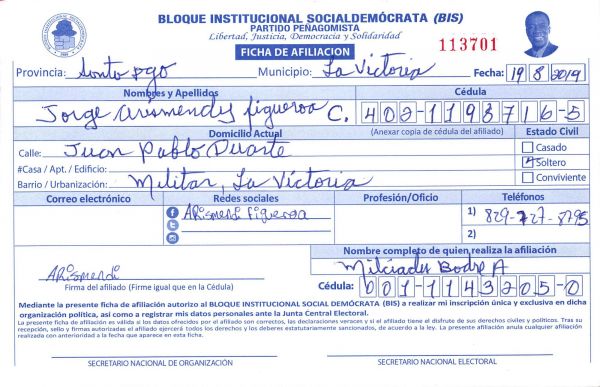 BLOQUE INSTITUCIONAL SOCIALDEMÓCRATA (BIS)
PARTIDO PEÑAGOMISTA
Libertad, Justicia, Democracia y Solidaridad
FICHA DE AFILIACION
113701
Provincia: Santo Dgo Municipio: La Victoria Fecha: 19 8 2019
Nombres y Apellidos Cédula
Jorge Arismendy Figueroa C. 402-1198716-5
Domicilio Actual (Anexar copia de cédula del afiliado) Estado Civil
Calle: Juan Pablo Duarte Casado
#Casa / Apt. / Edificio: Soltero
Barrio / Urbanización: Militar, La Victoria Conviviente
Correo electrónico Redes sociales Profesión/Oficio Teléfonos
Arismendi Figueroa 1) 829-727-8795
2)
Nombre completo de quien realiza la afiliación
Arismendi Milciades Bodre A
Firma del afiliado (Firme igual que en la Cédula) Cédula: 001-1143205-0
Mediante la presente ficha de afiliación autorizo al BLOQUE INSTITUCIONAL SOCIAL DEMÓCRATA (BIS) a realizar mi inscripción única y exclusiva en dicha
organización política, así como a registrar mis datos personales ante la Junta Central Electoral.
La presente ficha de afiliación es válida si los datos ofrecidos por el afiliado son correctos, las declaraciones veraces y si el afiliado tiene el disfrute de sus derechos civiles y políticos. Tras su
recepción, sello y firmas autorizadas el afiliado ejercerá todos los derechos y los deberes estatutariamente sancionados, de acuerdo a la ley. La presente afiliación anula cualquier afiliación
realizada con anterioridad a la fecha que aparece en esta ficha.
SECRETARIO NACIONAL DE ORGANIZACIÓN SECRETARIO NACIONAL ELECTORAL